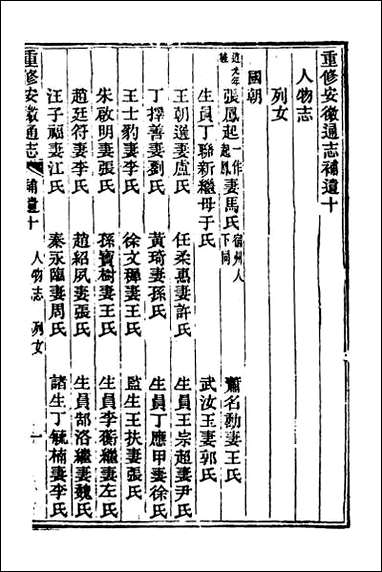 重修安徽通志補遺十
人物志
列女
國朝
道光年
張鳳起一作起鳳妻馬氏宿州人下同 蕭名勳妻王氏
生員丁聯新繼母于氏 武汝玉妻郭氏
王朝選妻盧氏 任柔惠妻許氏 生員王宗超妻尹氏
丁擇善妻劉氏 黃琦妻孫氏 生員丁應甲妻徐氏
王士豹妻李氏 徐文穉妻王氏 監生王扶妻張氏
朱啟明妻張氏 孫寶樹妻王氏 生員李衡繼妻左氏
趙廷符妻李氏 趙紹夙妻張氏 生員部洛繼妻魏氏
汪子福妻江氏 秦永臨妻周氏 諸生丁毓楠妻李氏
重修安徽通志 補遺十 人物志 列女 一